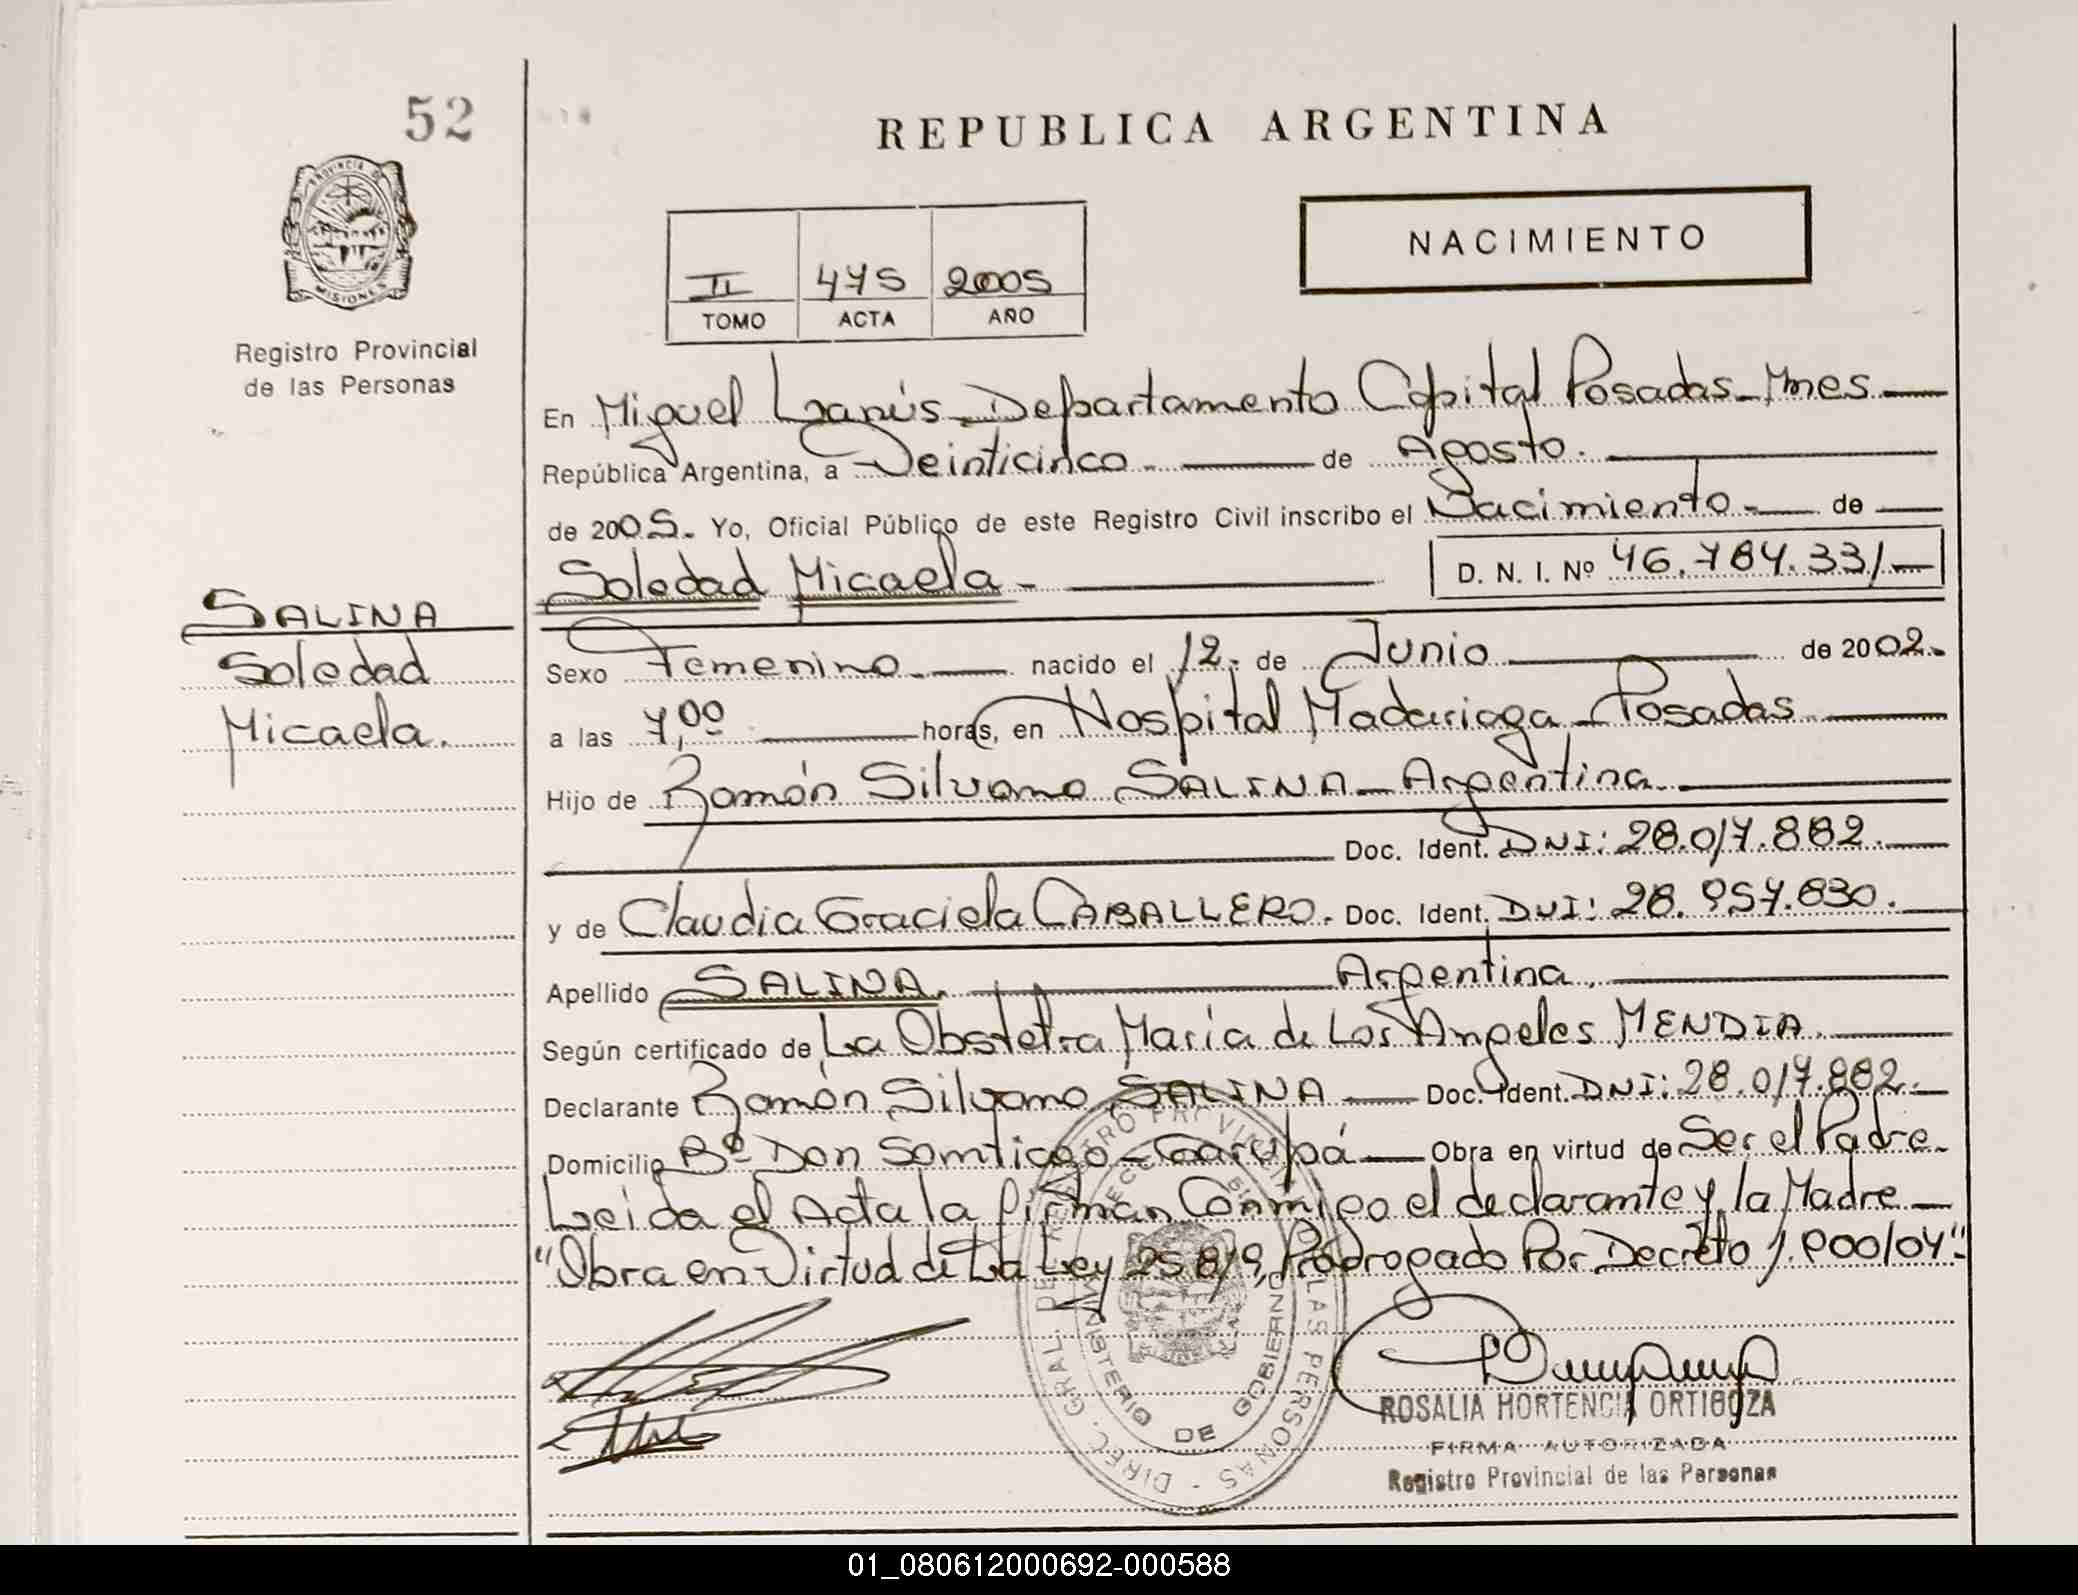 52
REPUBLICA ARGENTINA
PROVINCIA DE
MISIONES
Registro Provincial
de las Personas
II 475 2005
TOMO ACTA AÑO
NACIMIENTO
En Miguel Lanús - Departamento Capital Posadas - Mnes
República Argentina, a Veinticinco. de Agosto.
de 2005. Yo, Oficial Público de este Registro Civil inscribo el Nacimiento de
Soledad Micaela D. N. I. Nº 46.784.331
SALINA
Soledad
Micaela.
Sexo Femenino. nacido el 12. de Junio de 2002.
a las 7,00 horas, en Hospital Madariaga - Posadas
Hijo de Ramón Silvano SALINA - Argentina.
Doc. Ident. DNI: 28.017.882.
y de Claudia Graciela CABALLERO. Doc. Ident. DNI: 28.957.830.
Apellido SALINA. Argentina.
Según certificado de La Obstetra María de Los Angeles MENDIA.
Declarante Ramón Silvano SALINA Doc. Ident. DNI: 28.017.882.
Domicilio Bº Don Santiago - Garupá Obra en virtud de Ser el Padre.
Leida el Acta la firman Conmigo el declarante y la Madre
"Obra en Virtud de La Ley 25.819, Prorrogado Por Decreto 1.900/04"
DIREC. GRAL. DEL REGISTRO PROVINCIAL DE LAS PERSONAS
MINISTERIO DE GOBIERNO
ROSALIA HORTENCIA ORTIGOZA
FIRMA AUTORIZADA
Registro Provincial de las Personas
01_080612000692-000588